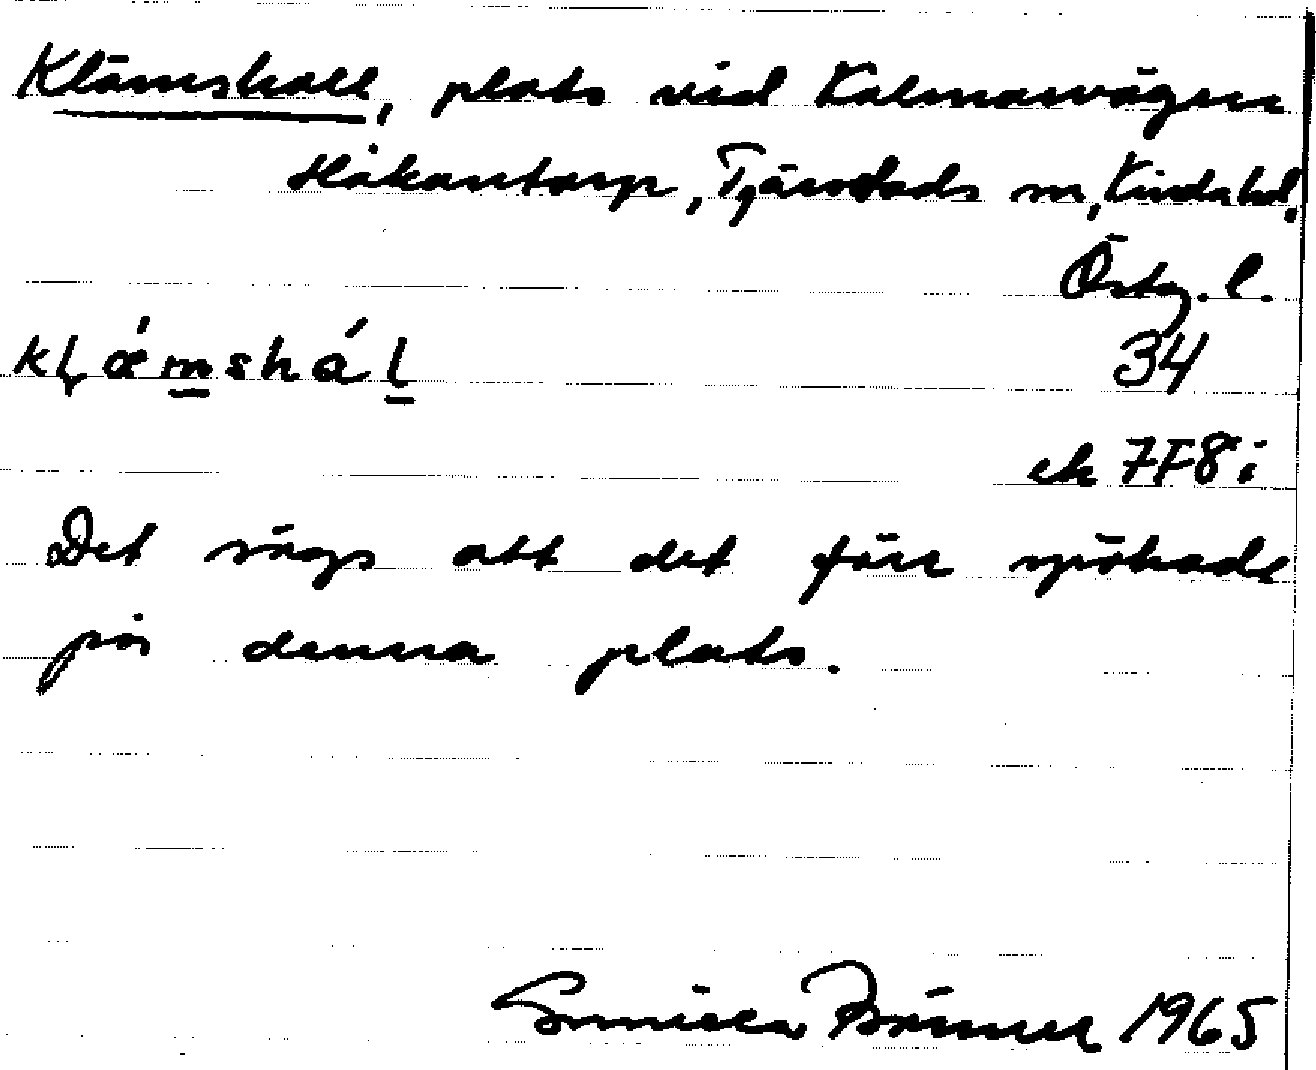 Klämshall, plats vid Kalmarvägen
Håkantorp, Tjärstads sn, Kinda hd.
Östg. l.
klǽmshál
34
ek 7F8i
Det sägs att det förr spökade
på denna plats.
1965